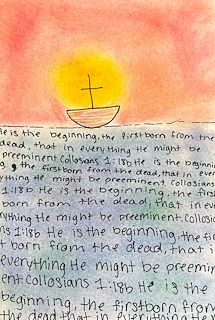 He is the beginning, the firstborn from the
dead, that in everything He might be
preeminent Collosians 1:18b He is the beginnin
g, the firstborn from the dead, that in ever
ything He might be preeminent Collosians
1:18b He is the beginning, the first
born from the dead, that in eve
rything He might be preeminent. Collosio
ns 1:18b He is the beginning, the firs
t born from the dead, that in
everything He might be preemin
ent Collosians 1:18b He is the
beginning, the firstborn from
the dead, that in everything He m